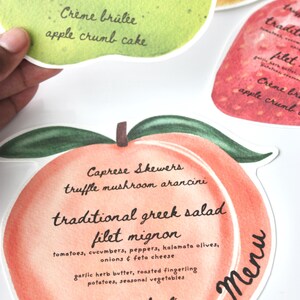 Crème brûlée
apple crumb cake
traditional
filet
Crème br
apple crumb
Caprese Skewers
truffle mushroom arancini
traditional greek salad
filet mignon
tomatoes, cucumbers, peppers, kalamata olives,
onions & feta cheese
garlic herb butter, roasted fingerling
potatoes, seasonal vegetables
Menu